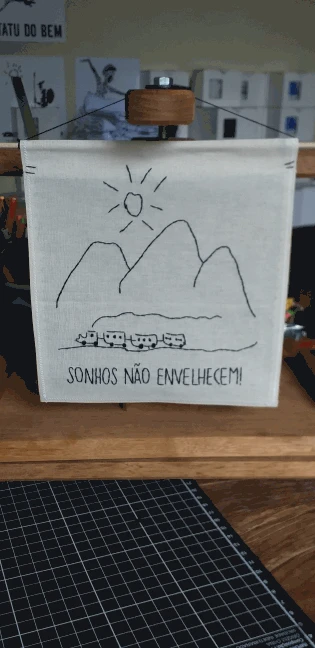 TATU DO BEM
SONHOS NÃO ENVELHECEM!